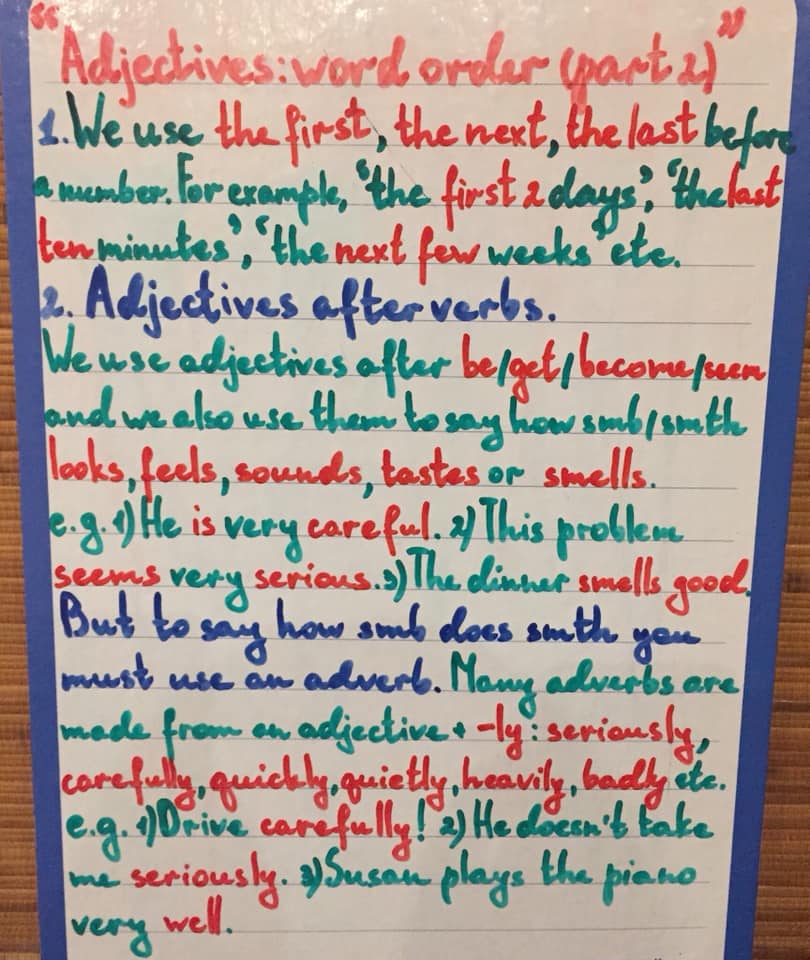 "Adjectives: word order (part 2)"
1. We use the first, the next, the last before
a number. For example, 'the first 2 days', 'the last
ten minutes', 'the next few weeks' etc.
2. Adjectives after verbs.
We use adjectives after be/get/become/seem
and we also use them to say how smb/smth
looks, feels, sounds, tastes or smells.
e.g. 1) He is very careful. 2) This problem
seems very serious. 3) The dinner smells good.
But to say how smb does smth you
must use an adverb. Many adverbs are
made from an adjective + -ly: seriously,
carefully, quickly, quietly, heavily, badly etc.
e.g. 1) Drive carefully! 2) He doesn't take
me seriously. 3) Susan plays the piano
very well.